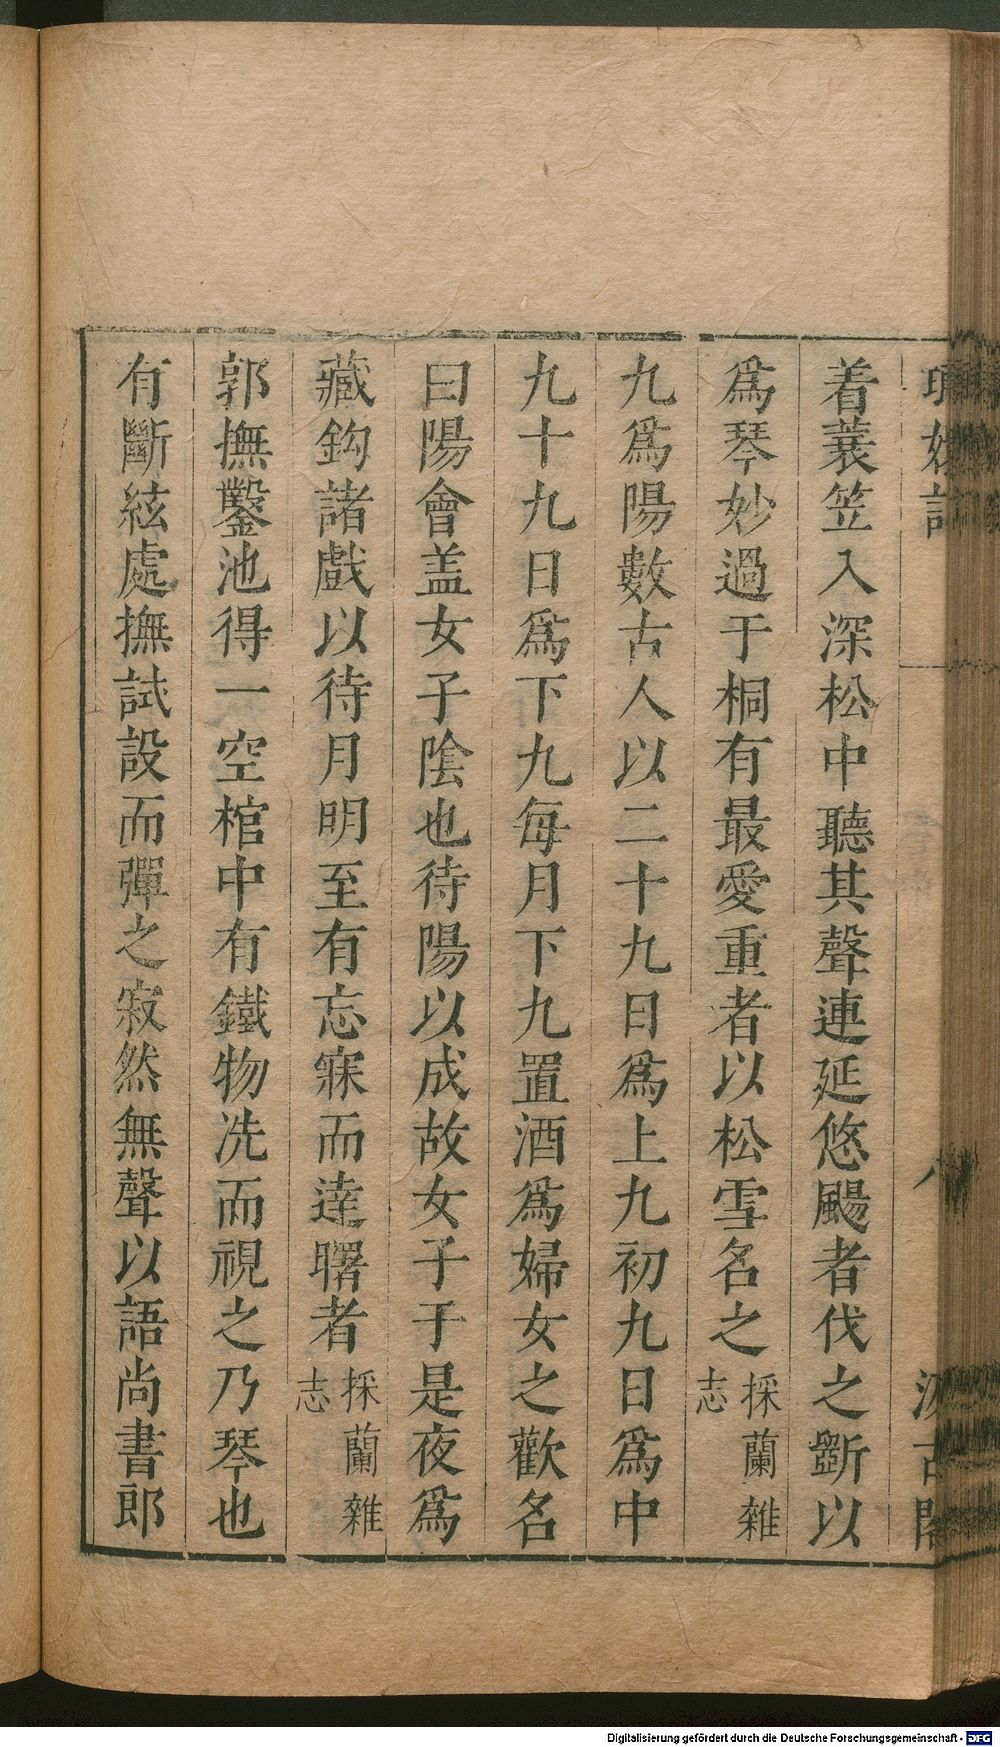 着蓑笠入深松中聽其聲連延悠颺者伐之斵以
爲琴妙過于桐有最愛重者以松雪名之採蘭雜志
九爲陽數古人以二十九日爲上九初九日爲中
九十九日爲下九每月下九置酒爲婦女之歡名
曰陽會盖女子陰也待陽以成故女子于是夜爲
藏鈎諸戲以待月明至有忘寐而達曙者採蘭雜志
郭撫鑿池得一空棺中有鐵物洗而視之乃琴也
有斷絃處撫試設而彈之寂然無聲以語尚書郎
Digitalisierung gefördert durch die Deutsche Forschungsgemeinschaft - DFG